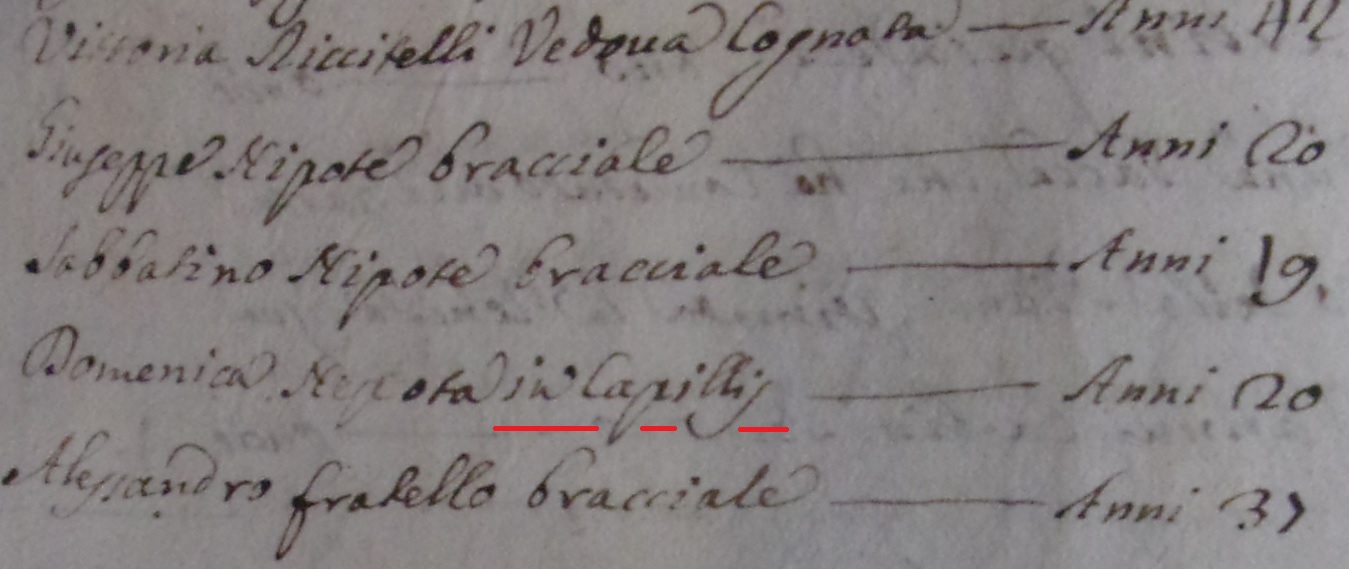 Vittoria Riccitelli Vedova Cognata — Anni 42
Giuseppe Nipote bracciale — Anni 20
Sabbatino Nipote bracciale — Anni 19.
Domenica Nepota in Capillis — Anni 20
Alessandro fratello bracciale — Anni 37